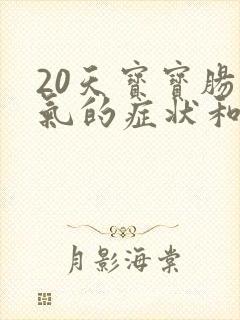 20天寶寶腸
氣的症状和
月影海棠